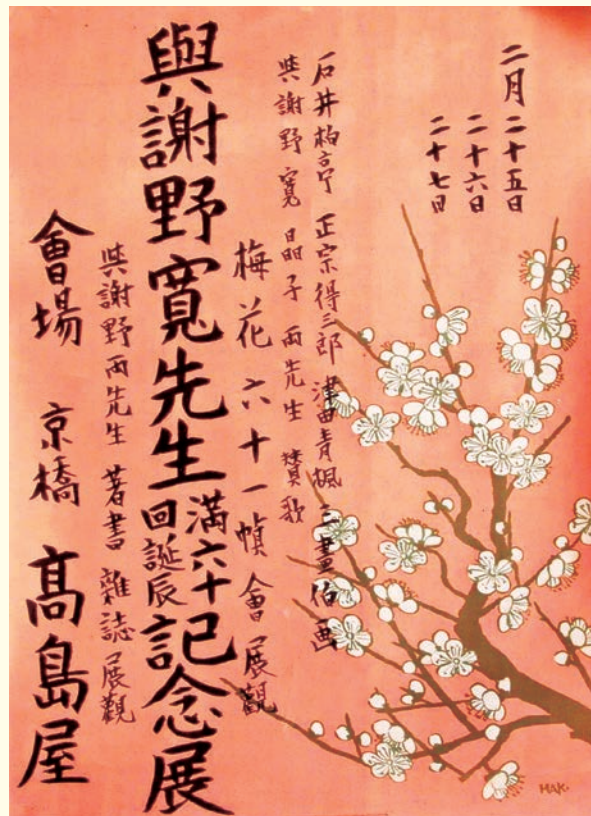 二月二十五日
二十六日
二十七日
石井柏亭 正宗得三郎 津田青楓 三畫伯画
與謝野寬 晶子 兩先生 賛歌
梅花六十一幀會展觀
與謝野寬先生 満六十回誕辰 記念展
與謝野兩先生 著書 雜誌 展觀
會場 京橋 髙島屋
MAK.